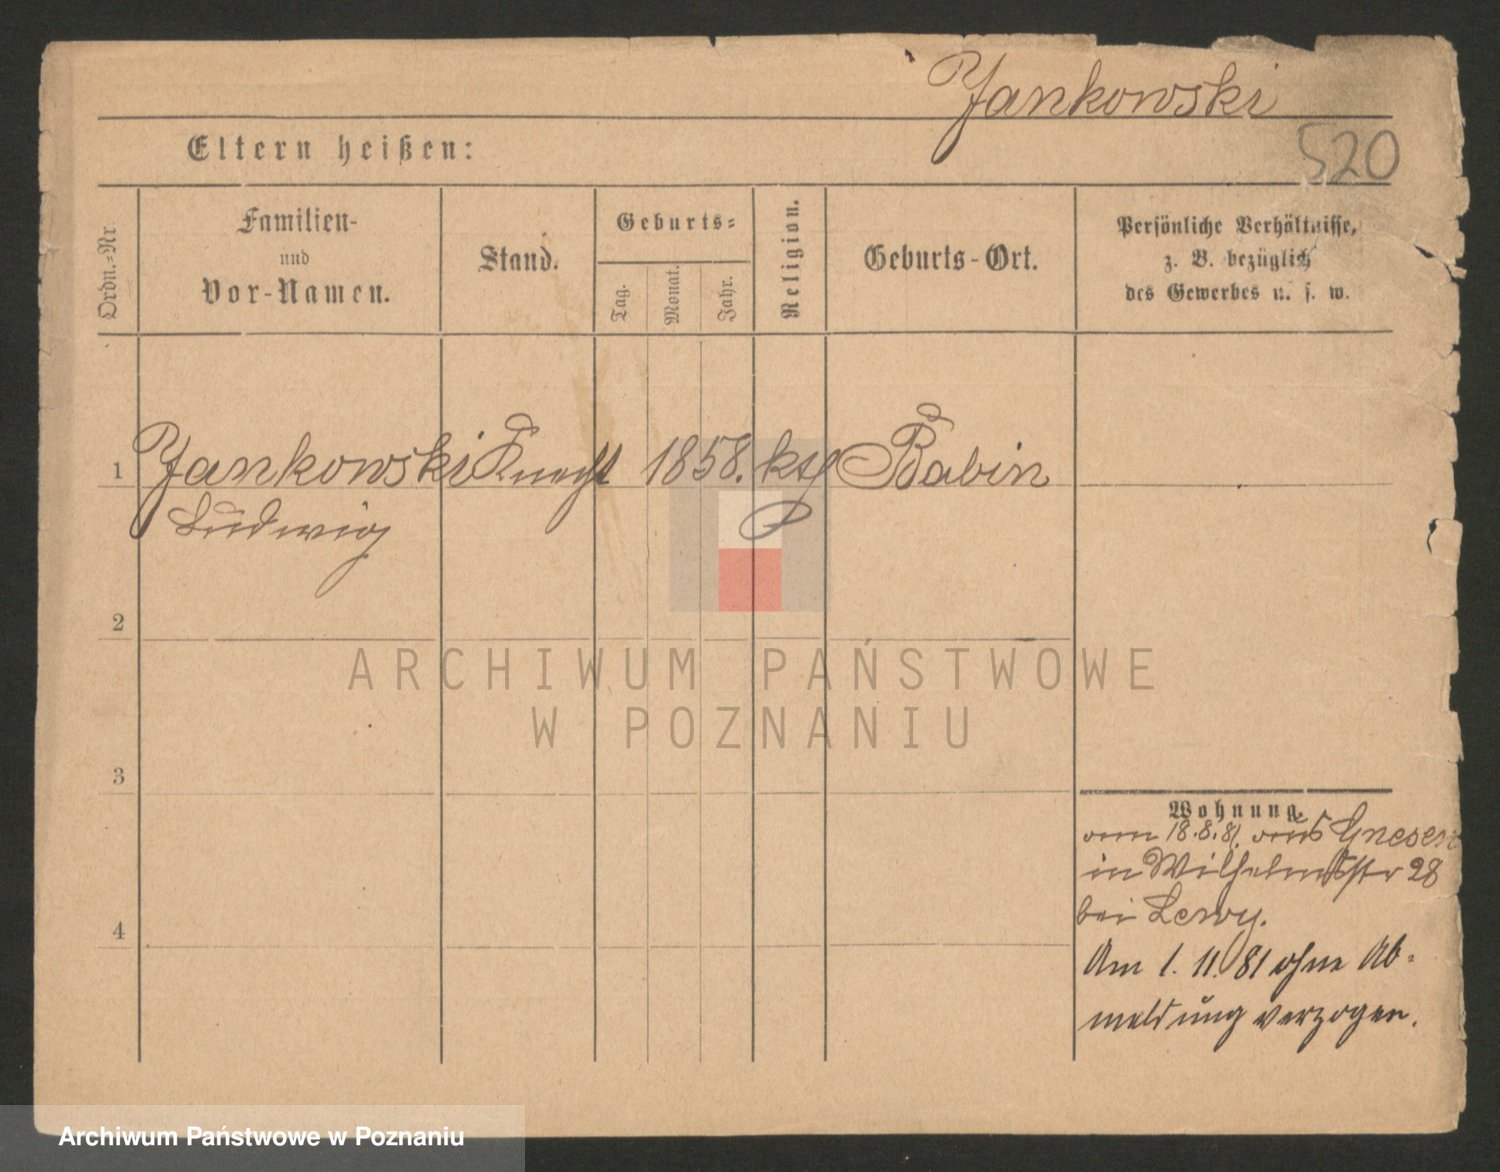 Jankowski
520
Eltern heißen:
Ordn.-Nr
Familien-
und
Vor-Namen.
Stand.
Geburts-
Tag.
Monat.
Jahr.
Religion.
Geburts-Ort.
Persönliche Verhältnisse,
z. B. bezüglich
des Gewerbes u. s. w.
1 Jankowski Knecht 1858. kth Babin
Ludwig
2
ARCHIWUM PAŃSTWOWE
W POZNANIU
3
Wohnung.
vom 18.8.81. aus Gnesen
in Wilhelmsstr 28
bei Lewy.
4
Am 1. 11. 81 ohne Ab-
meldung verzogen.
Archiwum Państwowe w Poznaniu